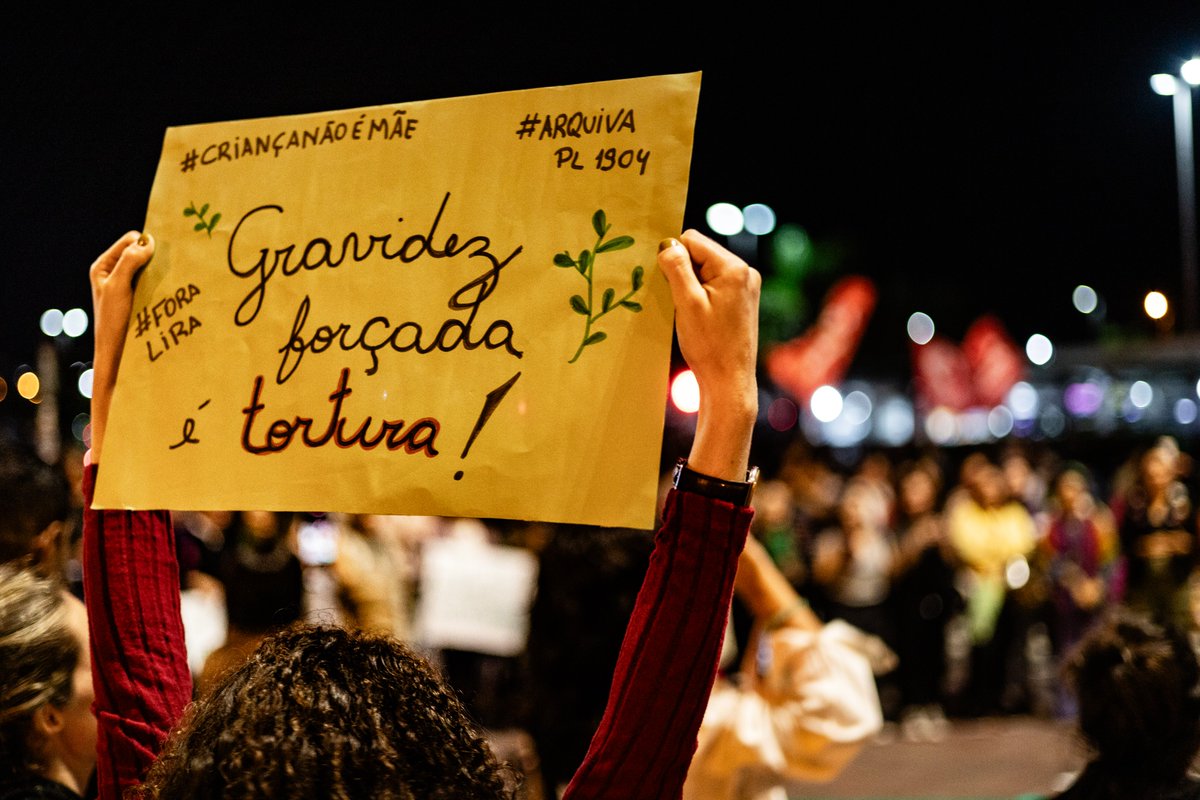 #CRIANÇANÃOÉMÃE
#ARQUIVA
PL 1904
Gravidez
forçada
é tortura!
#FORA
LIRA